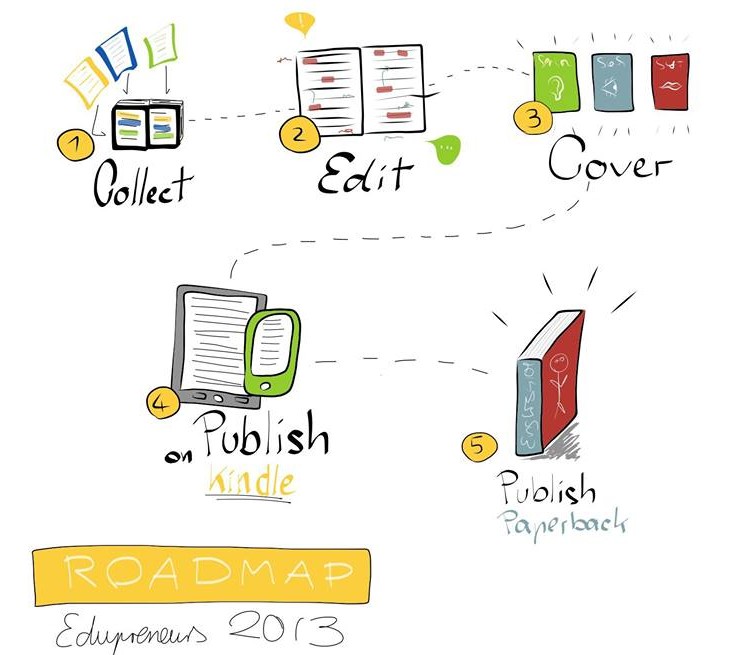 1
Collect
2
Edit
3
Cover
4
on Publish
Kindle
5
Publish
Paperback
ROADMAP
Edupreneurs 2013